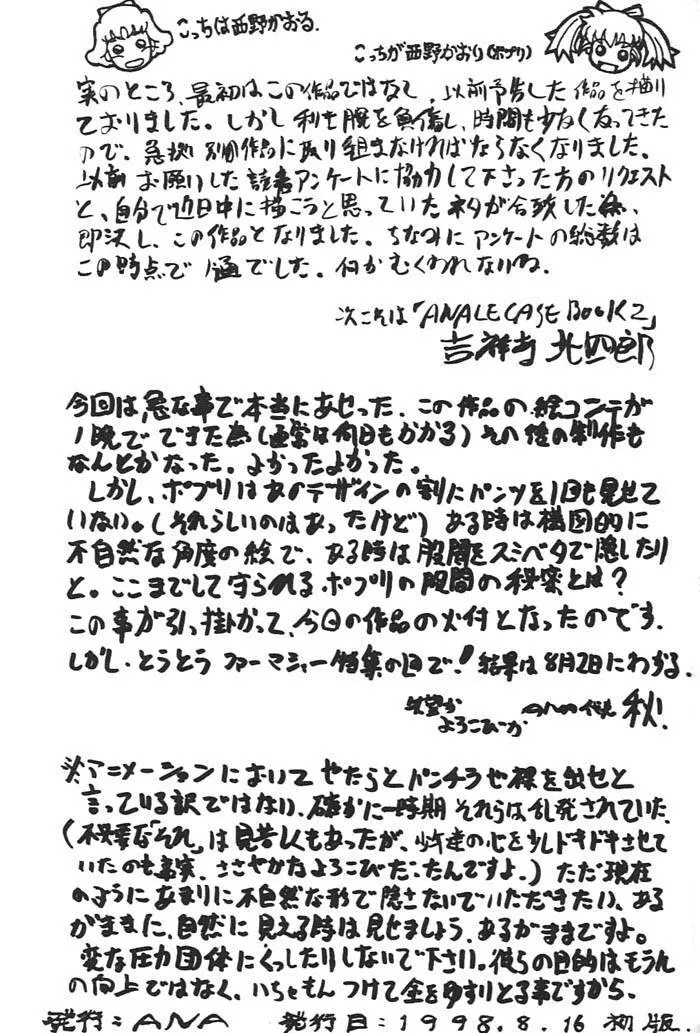 こっちは西野かおる.
こっちが西野かおり(ポプリ)
実のところ、最初はこの作品ではなく、以前予告した作品を描い
ておりました。しかし利き腕を負傷し、時間も少なくなってきた
ので、急拠 別個作品に取り組まなければならなくなりました。
以前 お願いした読者アンケートに協力して下さった方のリクエスト
と、自分で近日中に描こうと思っていたネタが合致した為、
即決し、この作品となりました。ちなみに アンケートの総数は
この時点で 1通でした。何かむくわれないね.
次こそは「ANALE CASE BOOK 2」
吉祥寺 北四郎
今回は急な事で本当にあせった. この作品の絵コンテが
1晩で できた為(通常は何日もかかる)その後の制作も
なんとかなった. よかったよかった。
しかし、ポプリはあのデザインの割にパンツを1回も見せて
いない。(それらしいのはあったけど) ある時は構図的に
不自然な角度の絵で、ある時は股間をスミベタで隠したり
と。ここまでして守られるポプリの股間の秘密とは?
この事が引っ掛かって、今回の作品の火付となったのです.
しかし・とうとう ファーマシャー特集の回で!結果は8月2日にわかる.
よろこびーか 秋!
※アニメーションにおいて やたらとパンチラや裸を出せと
言っている訳ではない. 確かに一時期 それらは乱発されていた.
(不必要な"それ"は見苦しくもあったが、少年達の心を少しドキドキさせて
いたのも事実. ささやかなよろこびだったんですよ.) ただ現在
のようにあまりに不自然な形で隠さないでいただきたい、ある
がままに、自然に見える時は見せましょう. あるがままですよ。
変な圧力団体にくっしたりしないで下さい。彼らの目的はもうん
の向上ではなく、いちゃもんつけて金をゆすりとる事ですから.
発行:ANA 発行日:1998.8.16 初版.